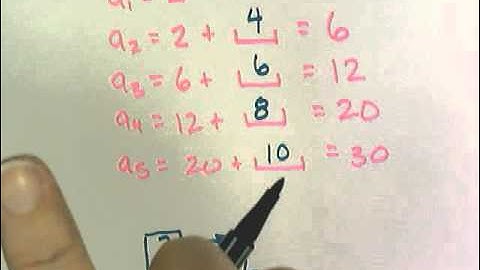 a₁ = 2
a₂ = 2 + 4 = 6
a₃ = 6 + 6 = 12
a₄ = 12 + 8 = 20
a₅ = 20 + 10 = 30